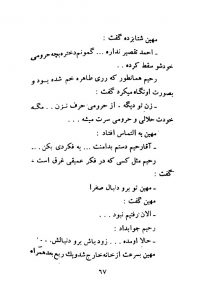 مهین شتابزده گفت :
ـ احمد تقصیر نداره ... گمونم دختره بچه حرومی
خودشو سقط کرده . .
رحیم همانطور که رری طاهره خم شده بود و
بصورت او نگاه میکرد گفت :
ـ زن تو دیگه . از حرومی حرف نزن . . مگه
خودت حلالی و حرومی سرت میشه . .
مهین به التماس افتاد :
ـ آقا رحیم دستم بدامنت ... یه فکری بکن . . .
رحیم مثل کسی که در فکر عمیقی غرق است -
گفت :
مهین تو برو دنبال صغرا
ـ الان رفتیم نبود . .
رحیم جوابداد :
ـ حالا اومده . . . زود باش برو دنبالش . . .
مهین بسرعت از خانه خارج شد و یك ربع بعد همراه
۶۷